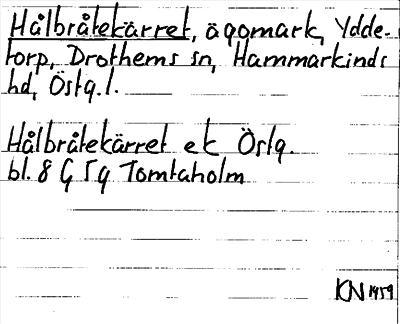 Hålbråtekärret, ägomark, Ydde-
torp, Drothems sn, Hammarkinds
hd, Östg.l.
Hålbråtekärret ek Östg.
bl. 8 G 5 g Tomtaholm
KN 1959